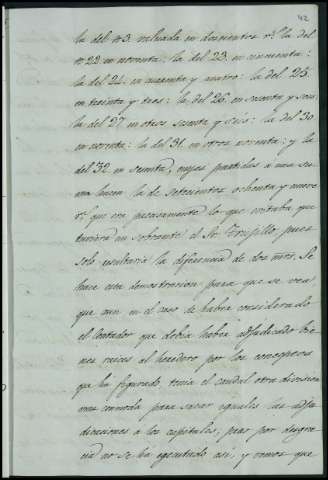 42
la del nº 3. valuada en doscientos rs. la del
nº 22 en noventa: la del 23. en cincuenta:
la del 24. en cuarenta y cuatro: la del 25.
en treinta y tres: la del 26. en sesenta y seis
la del 27 en otros sesenta y seis: la del 30
en noventa: la del 31. en otros noventa: y la
del 32 en sesenta, cuyas partidas a una su-
ma hacen la de setecientos ochenta y nueve
rs. que era precisamente lo que evitaba que
tuviera un sobrante el Sr. Trujillo, pues
solo resultaria la diferencia de dos mrs. Se
hace esta demostracion para que se vea,
que aun en el caso de haber considerado
el Contador que debia haber adjudicado bie-
nes raices al heredero por los conceptos
que ha figurado, tenia el caudal otra division
mas comoda para sacar iguales las adju-
dicaciones a los capitales; pero por desgra-
cia no se ha ejecutado asi, y vemos que